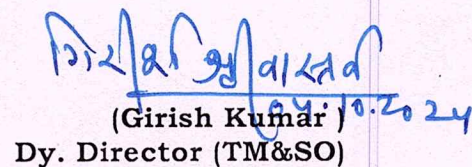 गिरीश श्रीवास्तव
04.10.2024
(Girish Kumar )
Dy. Director (TM&SO)